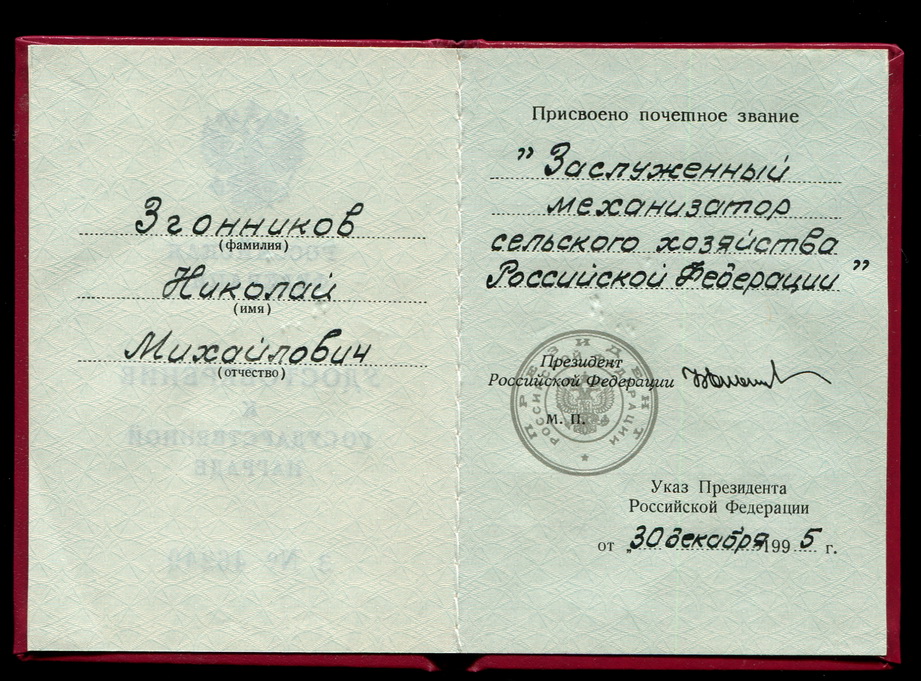 Згонников
(фамилия)
Николай
(имя)
Михайлович
(отчество)
Присвоено почетное звание
"Заслуженный
механизатор
сельского хозяйства
Российской Федерации"
Президент
Российской Федерации
М. П.
ПРЕЗИДЕНТ
РОССИЙСКОЙ ФЕДЕРАЦИИ
Указ Президента
Российской Федерации
от „30 декабря 1995 г.